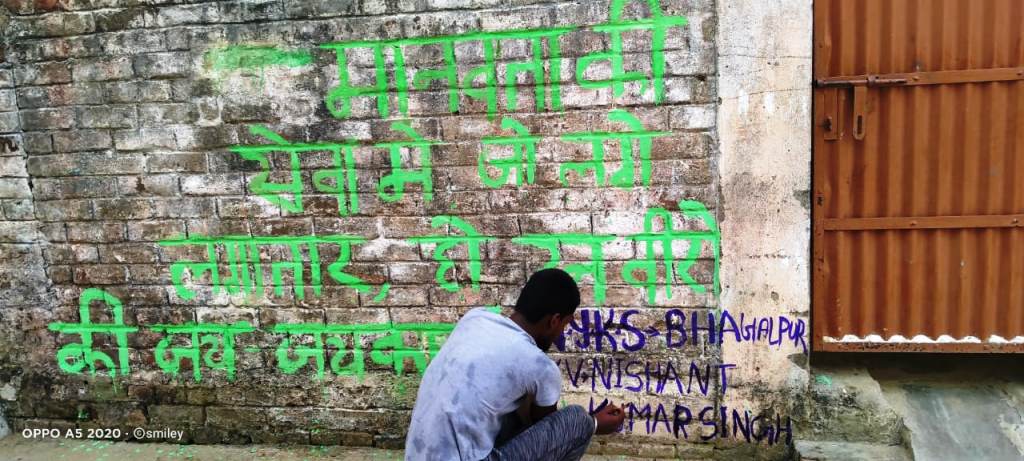 मानवता की
सेवा मे जो लगे
लगातार, हो उन वीरो
की जय-जयका
YKS-BHAGALPUR
V-NISHANT
KUMAR SINGH
OPPO A5 2020 · ©smiley